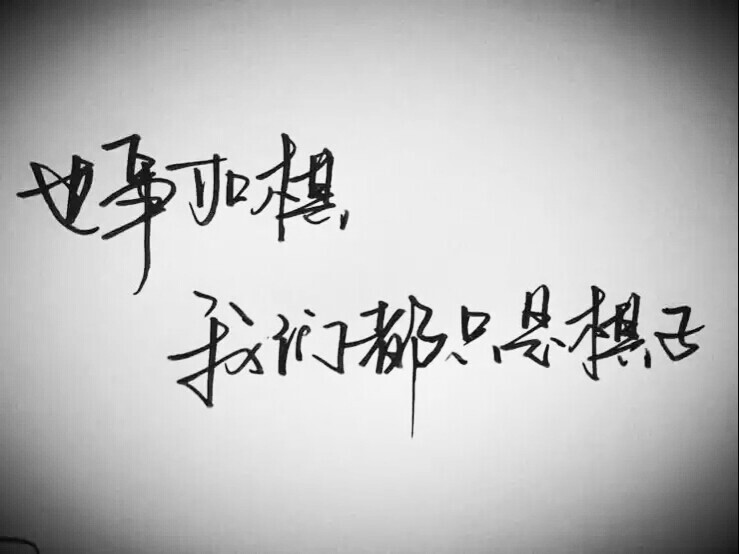 世事如棋,
我们都只是棋子